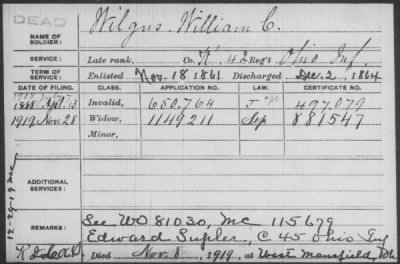 DEAD
NAME OF SOLDIER: Wilgus, William C.
SERVICE: Late rank, Co. K, 42 Reg't Ohio Inf.
TERM OF SERVICE: Enlisted Nov. 18 1861 Discharged Dec. 2, 1864
DATE OF FILING. CLASS. APPLICATION NO. LAW. CERTIFICATE NO.
1888 Apl. 13 Invalid, 650,764 J 497,079
1919 Nov. 28 Widow, 1149211 Sep 881547
Minor,
ADDITIONAL SERVICES:
12-29-19
REMARKS: See WO 81030, MC 115679
Edward Supler, C 45 Ohio Inf
Died Nov. 8, 1919, at West Mansfield, Oh